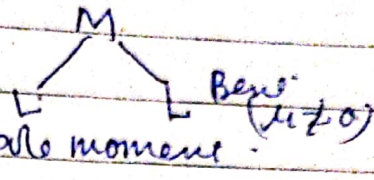 M
L L Bent
(μ ≠ 0)
ole moment.